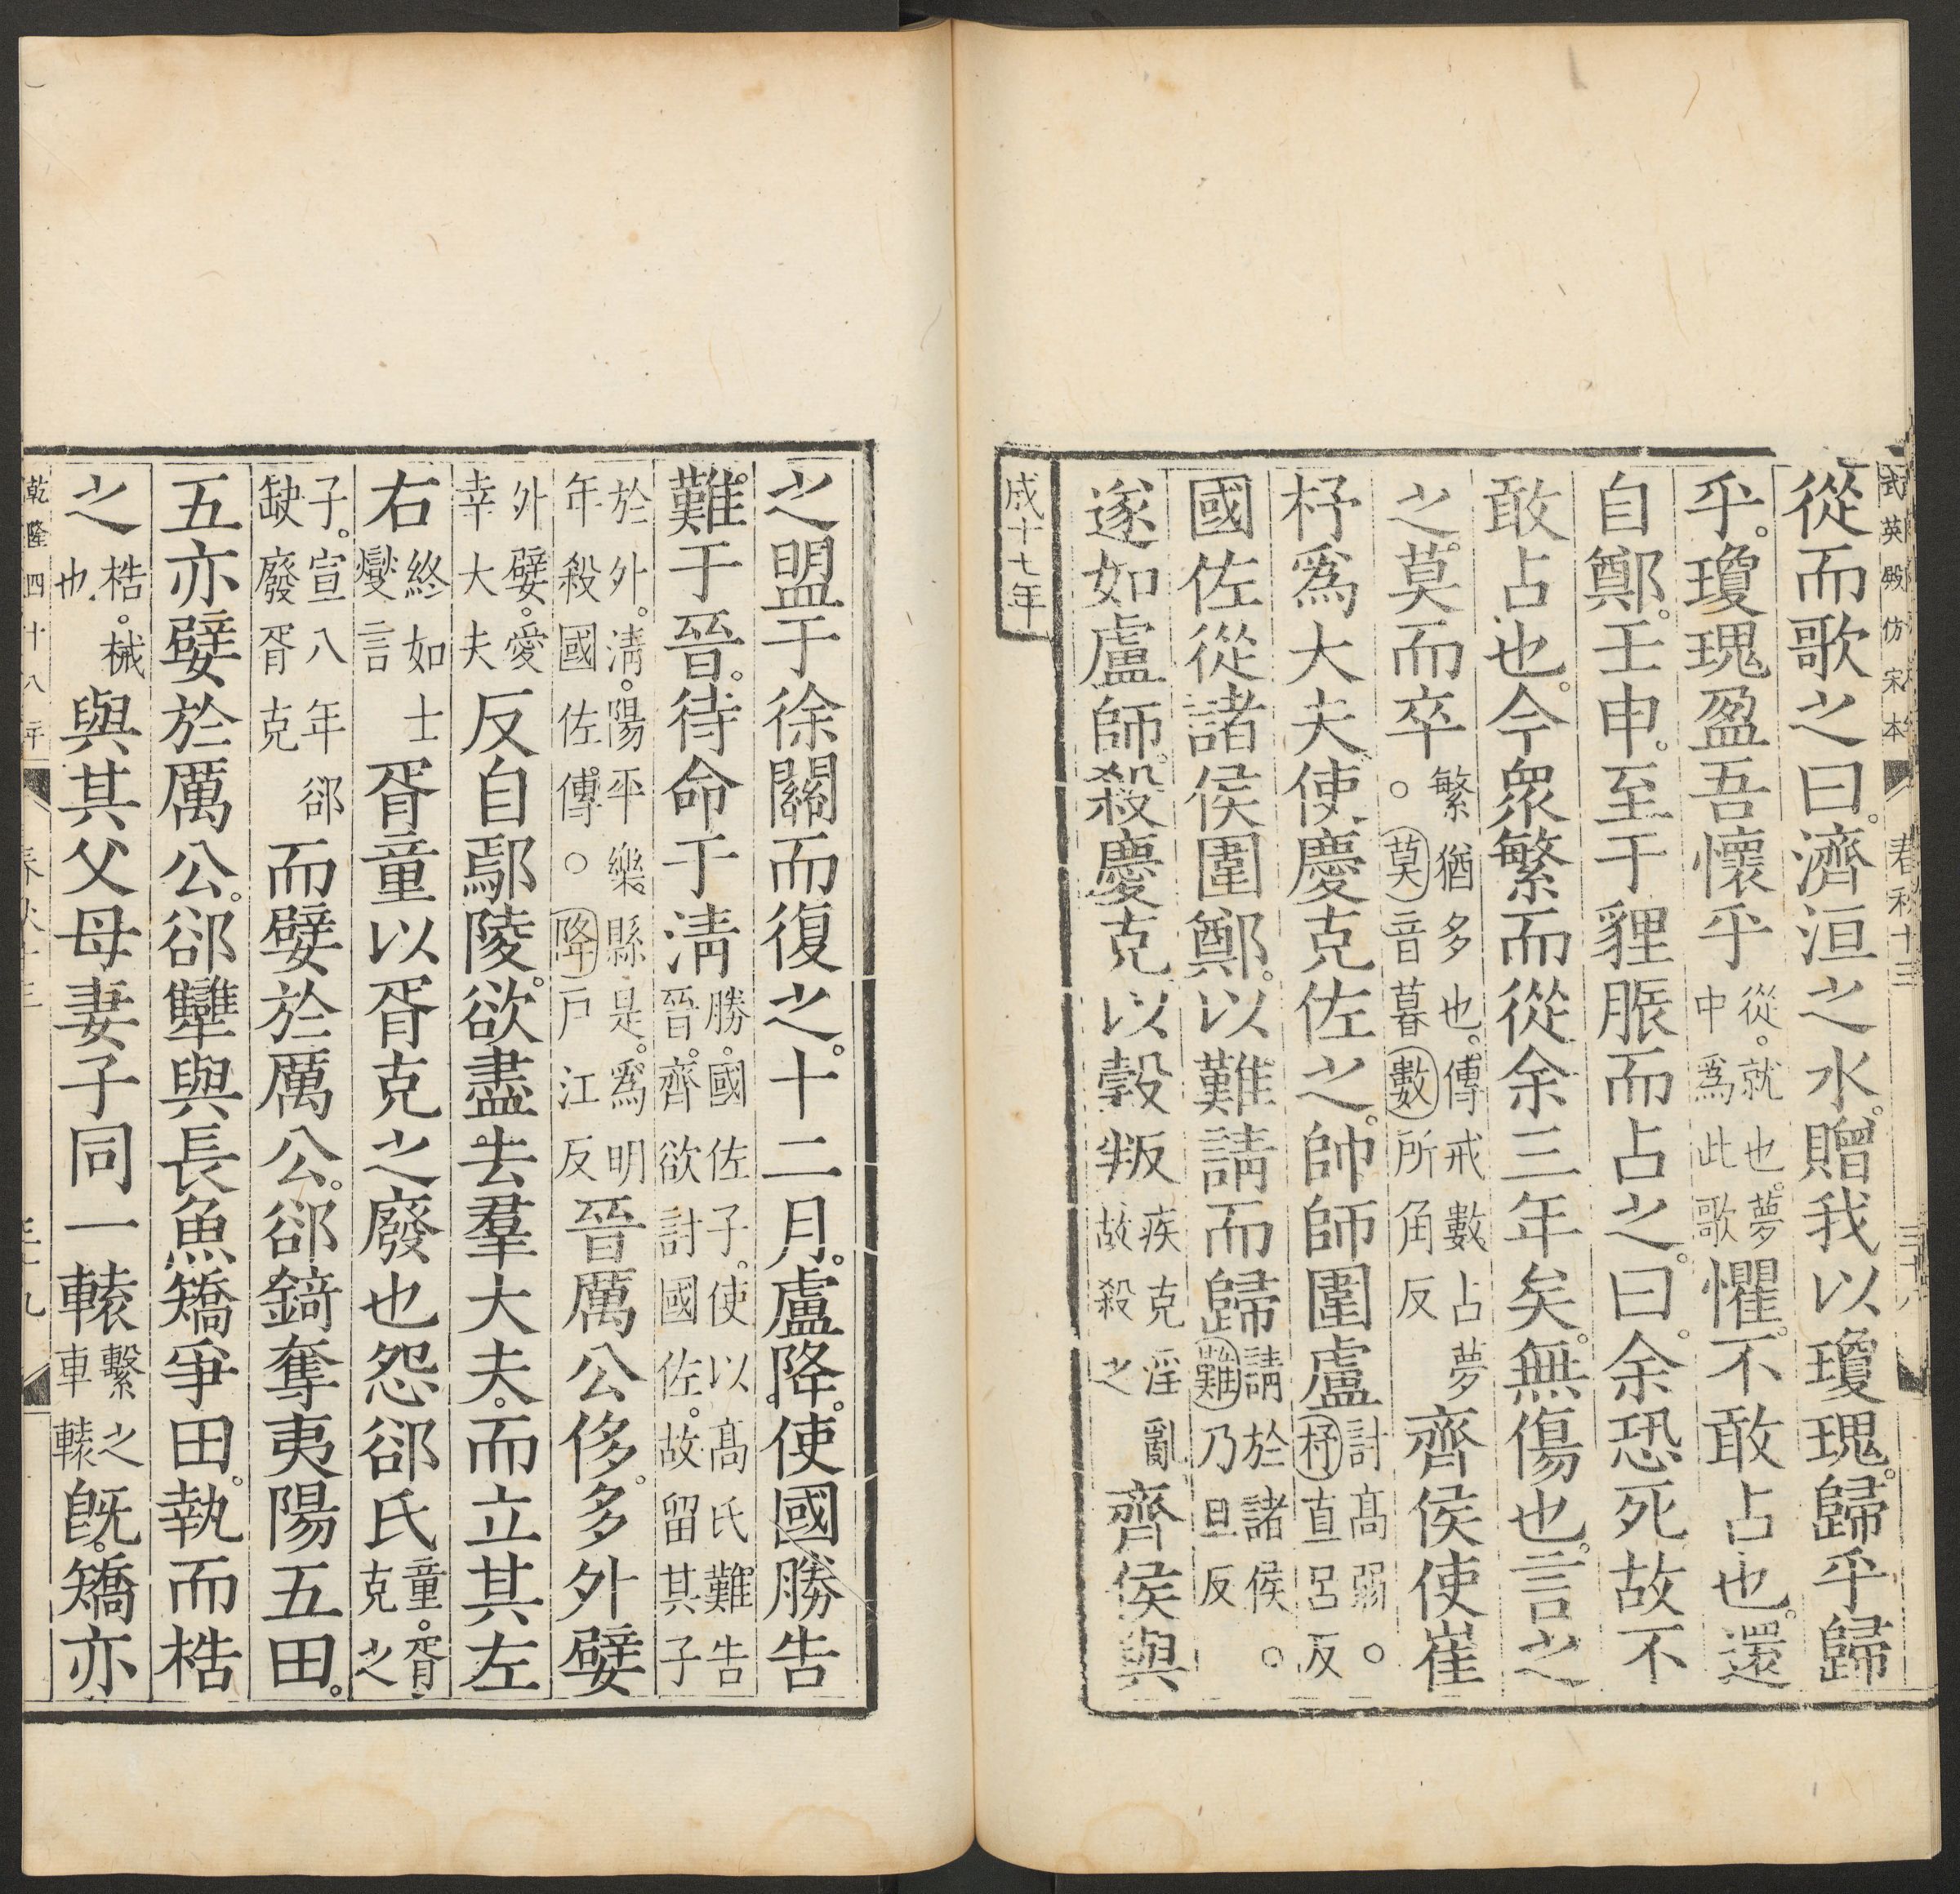 武英殿仿宋本 春秋十三 三十八
從而歌之曰。濟洹之水。贈我以瓊瑰。歸乎歸
乎。瓊瑰盈吾懷乎從。就也。夢中爲此歌懼。不敢占也。還
自鄭。壬申。至于貍脤而占之。曰。余恐死故不
敢占也。今衆繁而從余三年矣。無傷也。言之
之。莫而卒繁猶多也。傳戒數占夢。○莫音暮數所角反齊侯使崔
杼爲大夫。使慶克佐之。帥師圍盧討高弱。○杼直呂反
國佐從諸侯圍鄭。以難請而歸請於諸侯。○難乃旦反
遂如盧師。殺慶克以穀叛疾克淫亂故殺之齊侯與
成十七年
之盟于徐關而復之。十二月。盧降。使國勝告
難于晉。待命于淸勝。國佐子。使以高氏難告晉。齊欲討國佐。故留其子
於外。淸。陽平樂縣是。爲明年殺國佐傳。○降戶江反晉厲公侈。多外嬖
外嬖。愛幸大夫反自鄢陵。欲盡去羣大夫。而立其左
右終如士燮言胥童以胥克之廢也怨郤氏童。胥克之
子。宣八年郤缺廢胥克而嬖於厲公。郤錡奪夷陽五田。
五亦嬖於厲公。郤犫與長魚矯爭田。執而梏
之梏。械也與其父母妻子同一轅繫之車轅旣。矯亦
乾隆四十八年 春秋十三 三十九